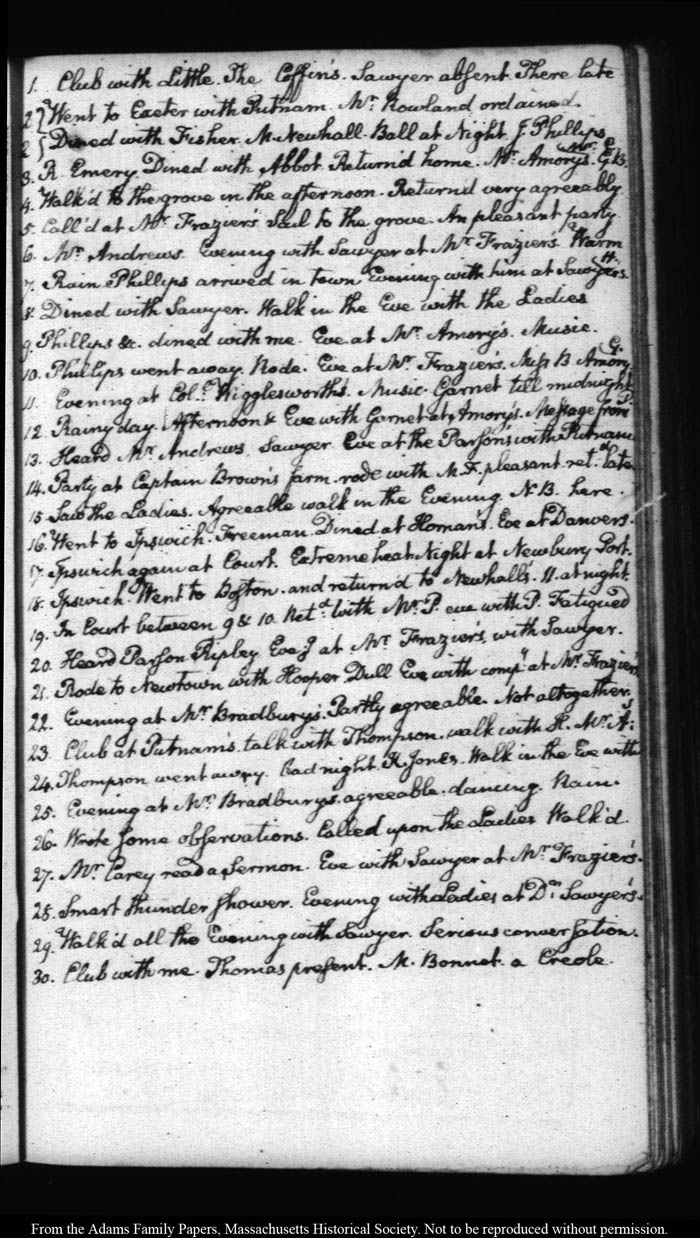 1. Club with Little. The Coffin's. Sawyer absent. There late
2 } Went to Exeter with Putnam. Mr. Rowland ordained.
2 } Dined with Fisher. M. Newhall. Ball at Night J. Phillips
3. R. Emery. Dined with Abbot. Return'd home. Mr. Amory's.
4. Walk'd to the grove in the afternoon. Return'd very agreeably
5. Call'd at Mr. Frazier's Sail to the grove. An pleasant party
6. Mr. Andrews. Evening with Sawyer at Mr. Frazier's. Warm
7. Rain Phillips arrived in town Evening with him at Sawyer's.
8. Dined with Sawyer. Walk in the Eve with the Ladies
9. Phillips &c. dined with me. Eve. at Mr. Amory's. Music.
10. Phillips went away. Rode. Eve at Mr. Frazier's. Miss B Amory
11. Evening at Col. Wigglesworth's. Music. Garnet till midnight
12 Rainy day. Afternoon & Eve with Garnet at Amory's. Message from
13. Heard Mr. Andrews. Sawyer. Eve at the Parson's with Putnam
14. Party at Captain Brown's farm. rode with M. F. pleasant ret.d late
15 Saw the Ladies. Agreeable walk in the Evening. N.B. here.
16. Went to Ipswich. Freeman. Dined at Homan's. Eve at Danvers.
17. Ipswich again at Court. Extreme heat. Night at Newbury Port.
18. Ipswich. Went to Boston. and return'd to Newhall's. 11. at night.
19. In Court between 9 & 10. Ret.d with Mr. P. eve with P. Fatigued
20. Heard Parson Ripley. Eve.g at Mr. Frazier's, with Sawyer.
21. Rode to Newtown with Hooper. Dull Eve with comp.y at Mr. Frazier's
22. Evening at Mr. Bradbury's. Partly agreeable. Not altogether.
23. Club at Putnam's. talk with Thompson. walk with H. Mr. A's.
24. Thompson went away. Bad night. H. Jones. Walk in the Eve with
25. Evening at Mr. Bradbury's. agreeable. dancing. Rain.
26. Wrote some observations. Called upon the Ladies Walk'd.
27. Mr. Carey read a Sermon. Eve with Sawyer at Mr. Frazier's.
28. Smart thunder shower. Evening with Ladies at Dr. Sawyer's.
29. Walk'd all the Evening with Sawyer. Serious conversation.
30. Club with me. Thomas present. M. Bonnet. a Creole.
From the Adams Family Papers, Massachusetts Historical Society. Not to be reproduced without permission.